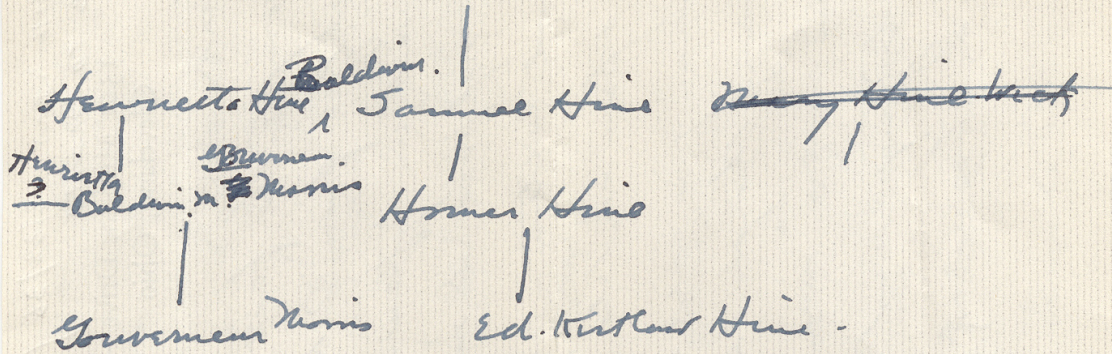 Baldwin.
Henrietta Hine ^ Samuel Hine Mary Hine Wick
Henrietta Gouverneur.
? Baldwin. m. Morris Homer Hine
Gouverneur Morris Ed. Kirtland Hine.